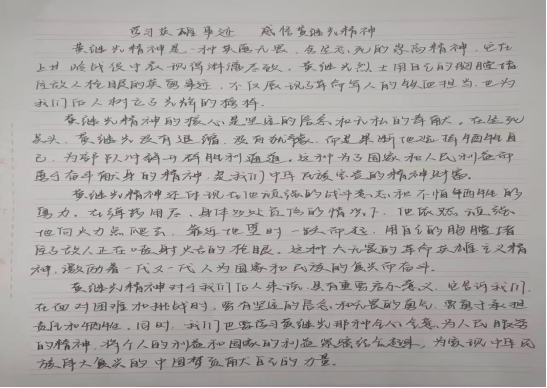 学习英雄事迹 感悟黄继光精神
黄继光精神是一种英勇无畏、舍生忘死的崇高精神,它在
上甘岭战役中表现得淋漓尽致。黄继光烈士用自己的胸膛堵
住敌人枪眼的英勇事迹,不仅展现了革命军人的铁血担当,也为
我们后人树立了光辉的榜样。
黄继光精神的核心是坚定的信念和无私的奉献。在生死
关头,黄继光没有退缩,没有犹豫,而是果断地选择牺牲自
己,为部队冲锋开辟胜利通道。这种为了国家和人民利益而
勇于奋斗献身的精神,是我们中华民族宝贵的精神财富。
黄继光精神还体现在他顽强的战斗意志和不怕牺牲的
勇力。在弹药用尽、身体多处负伤的情况下,他依然顽强
地向火力点爬去,靠近地堡时一跃而起,用自己的胸膛堵
住了敌人正在喷射火舌的枪眼。这种大无畏的革命英雄主义精
神,激励着一代又一代人为国家和民族的复兴而奋斗。
黄继光精神对于我们后人来说,具有重要启示意义。它告诉我们,
在面对困难和挑战时,要有坚定的信念和无畏的勇气,要勇于承担
责任和牺牲。同时,我们也要学习黄继光那种全心全意为人民服务
的精神,将个人的利益和国家的利益紧密结合起来,为实现中华民
族伟大复兴的中国梦贡献自己的力量。